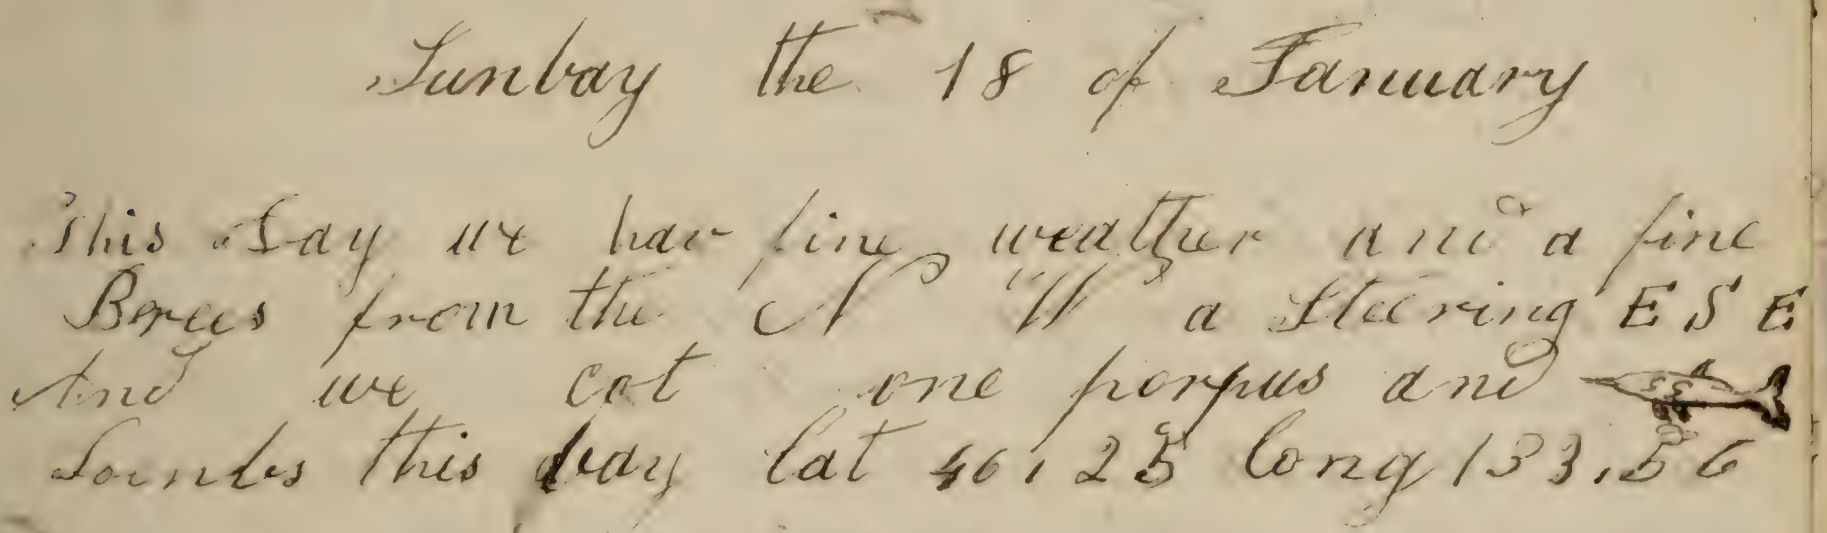 Sunbay the 18 of January
This Day we hav fine weather and a fine
Brees from the N W a Steering E S E
And we cot one porpus and
Soendes this day lat 46,25 long 133,56